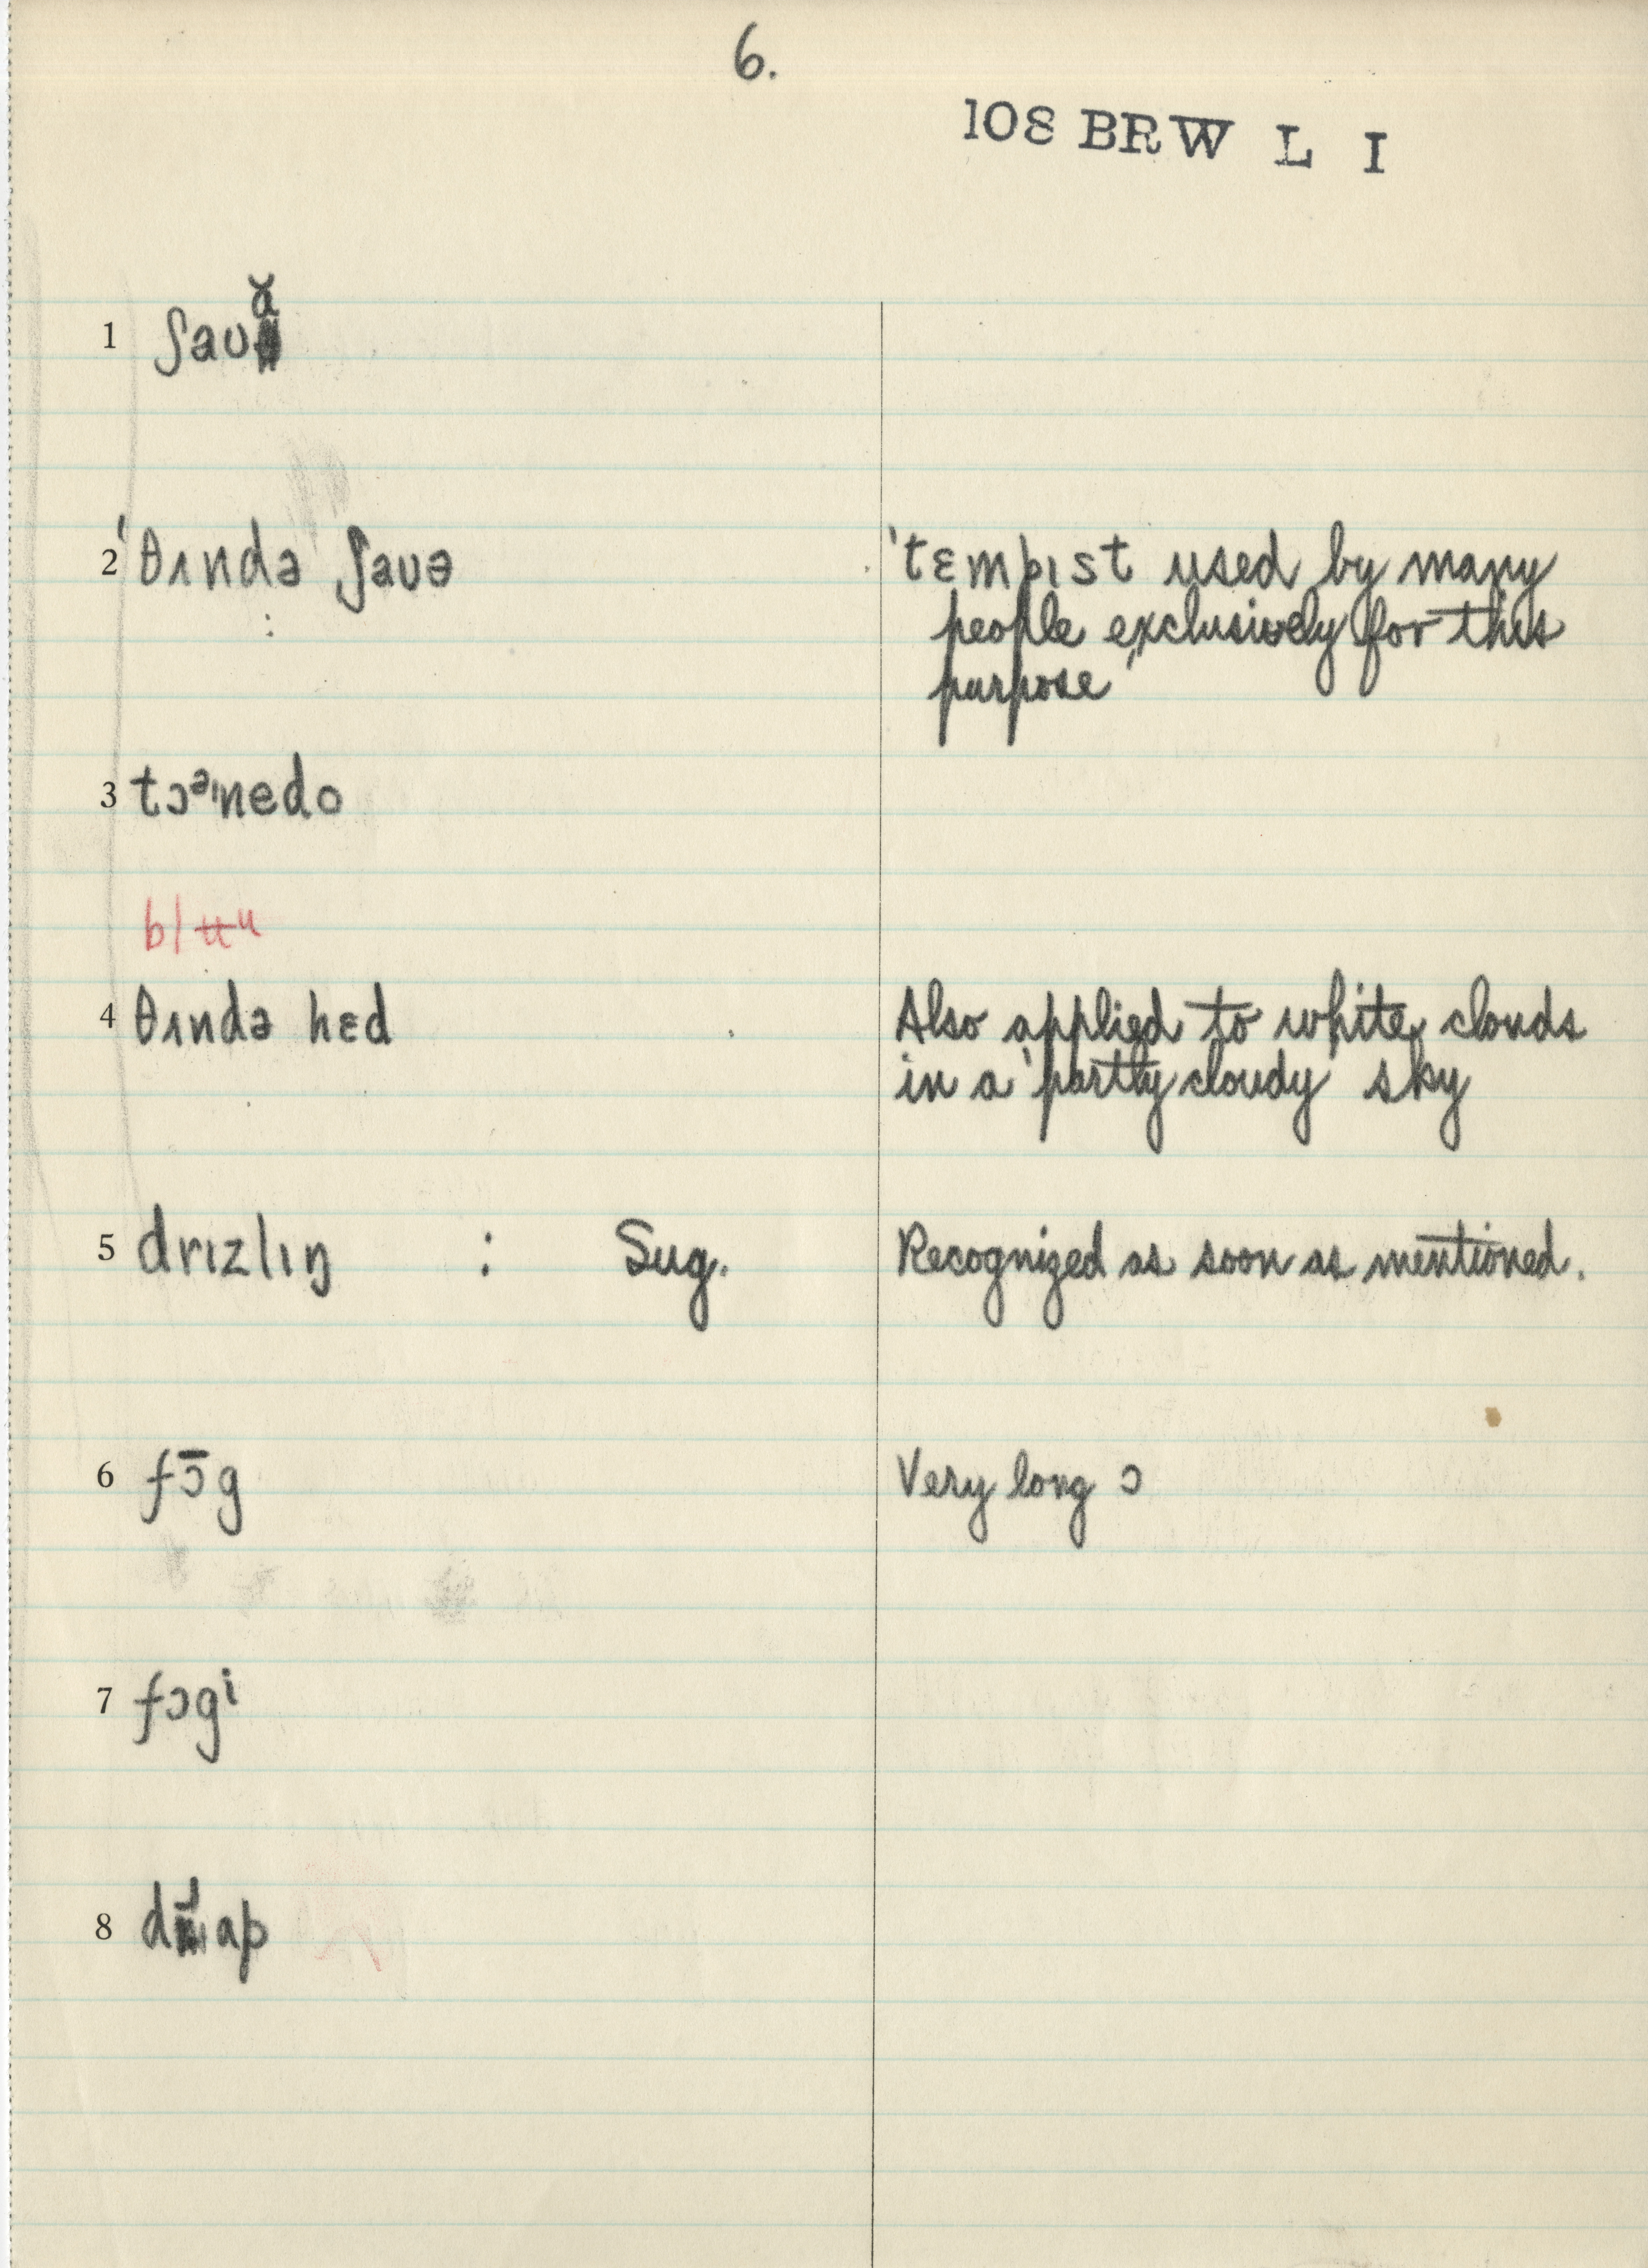 6.
108 BRW L I
1 ʃaʊə̆
2 'θʌndə ʃaʊə
'tɛmpɪst used by many
people exclusively for this
purpose'
3 tɔᵊˈnedo
4 θʌndə hɛd
Also applied to white clouds
in a 'partly cloudy' sky
5 drɪzlɪŋ : Sug.
Recognized as soon as mentioned.
6 fɔ̄g
Very long ɔ
7 fɔgⁱ
8